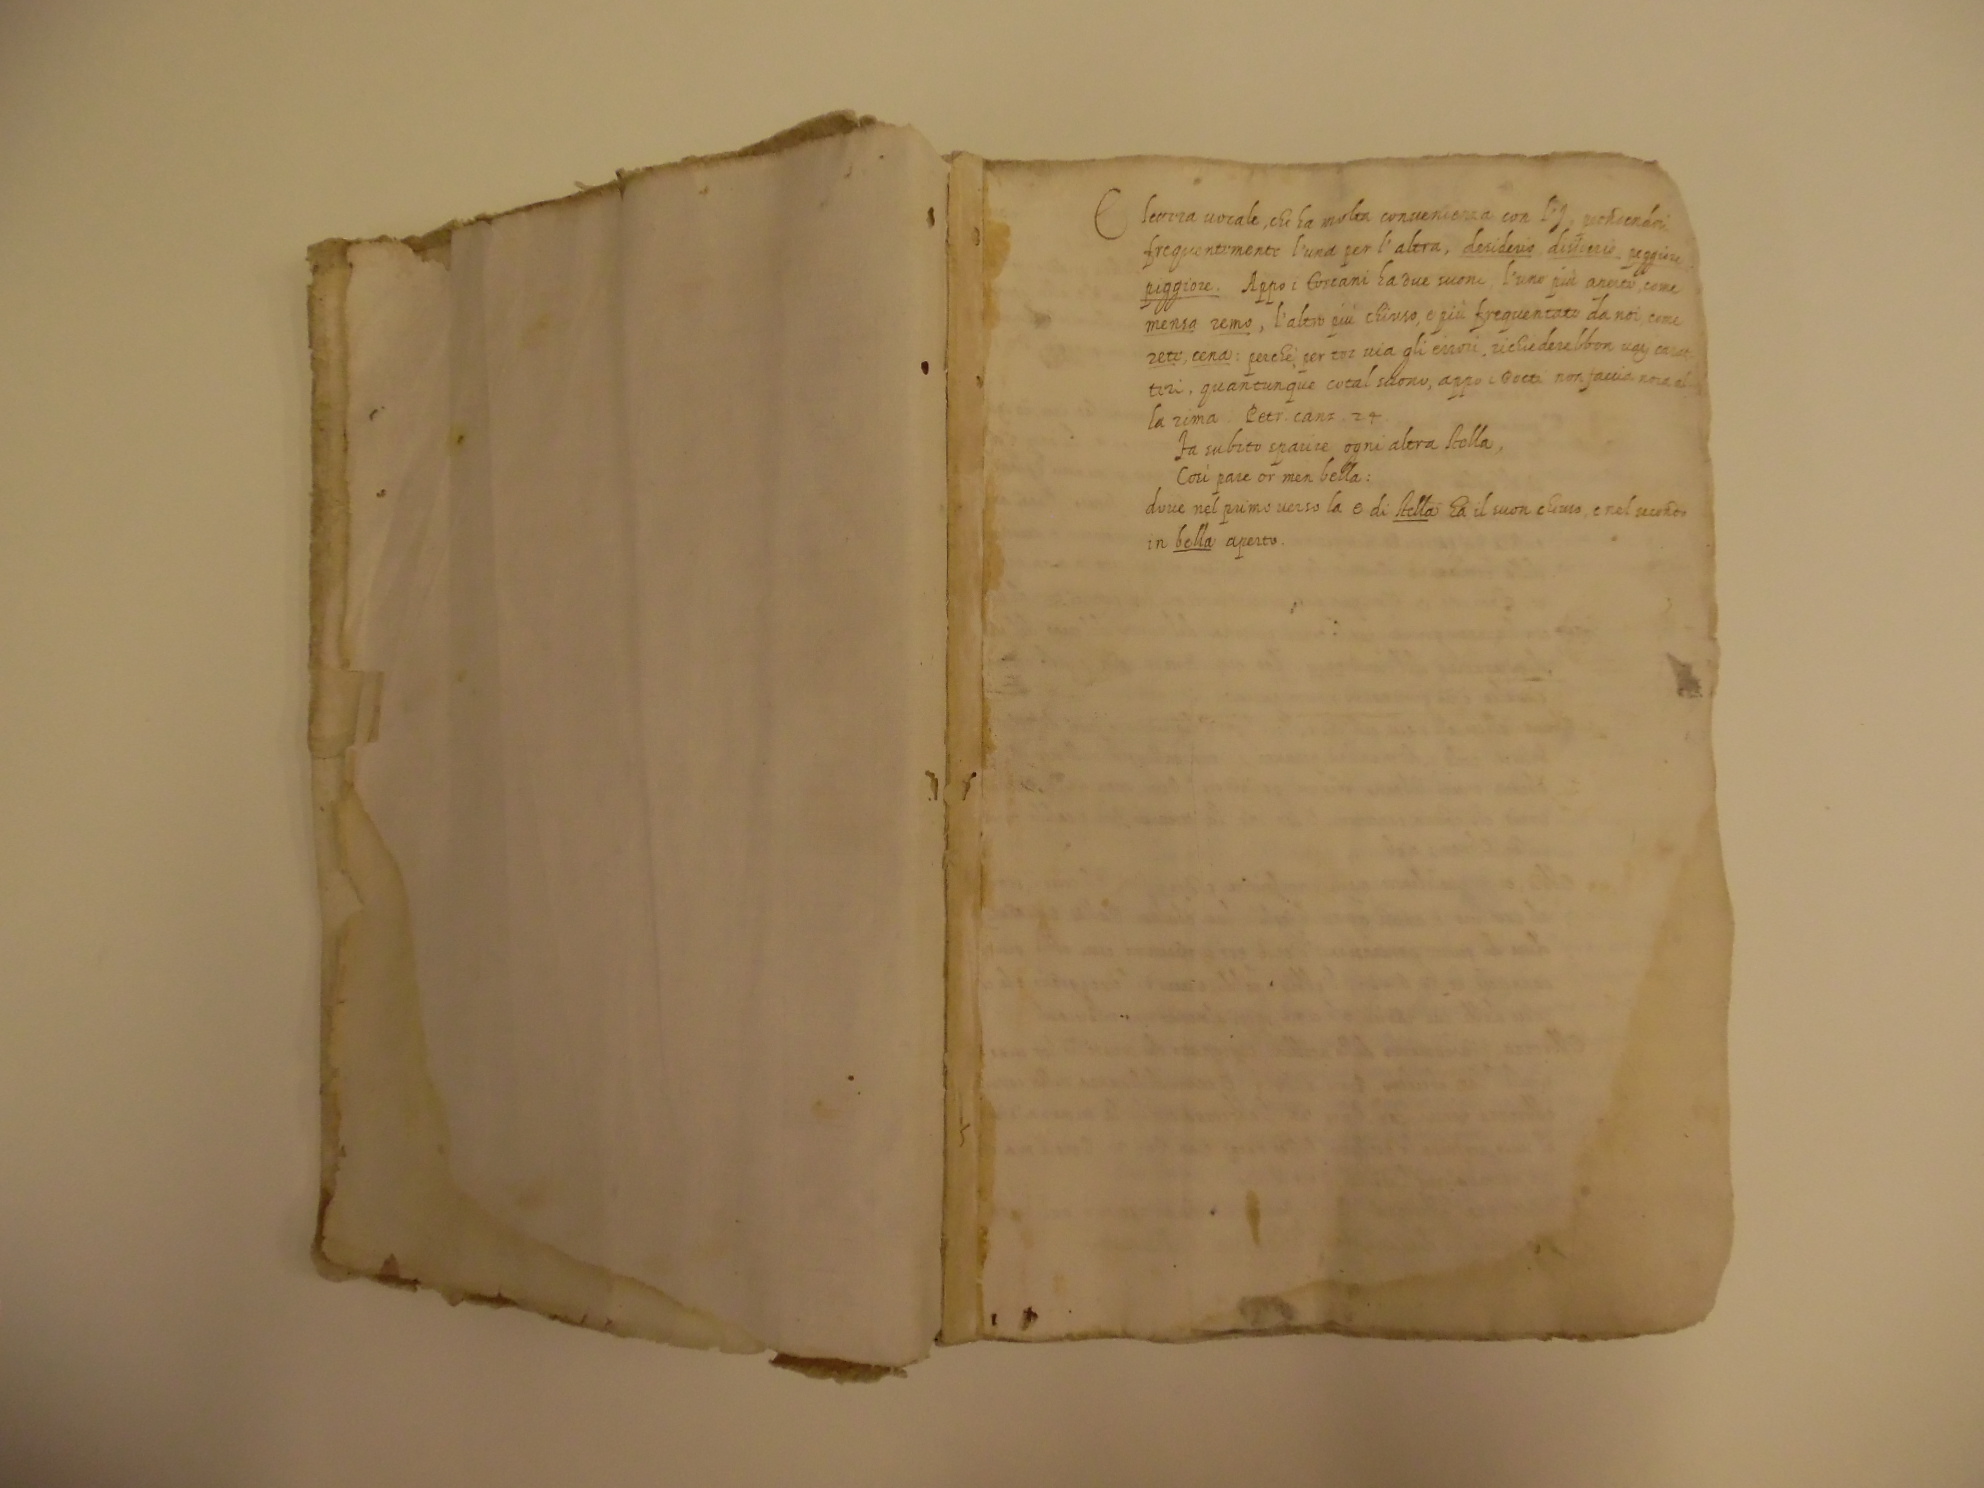 E lettera uocale, che ha molta conuenienza con l'I, ponendosi
frequentemente l'una per l'altra, desiderio disiderio, peggiore
piggiore. Appo i Toscani ha due suoni, l'uno più aperto, come
mensa remo, l'altro più chiuso, e più frequentato da noi, come
rete, cena: perchè per tor uia gli errori, richiederebbon uarj carat
teri, quantunque cotal suono, appo i Poeti non faccia noia al
la rima. Petr. canz. 24.
Fa subito sparire ogni altra stella,
Così pare or men bella:
doue nel primo uerso la e di stella ha il suon chiuso, e nel secondo
in bella aperto.